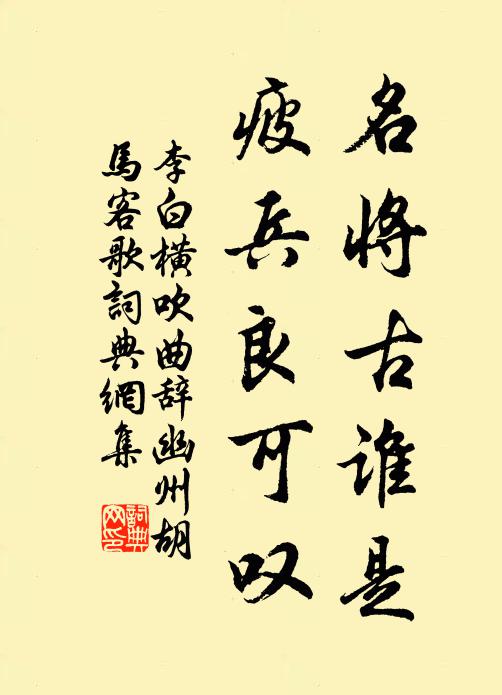 名将古谁是
疲兵良可叹
李白横吹曲辞幽州胡
馬客歌詞典網集
詞典网印